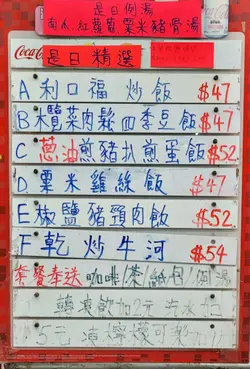 是日例湯
南瓜.紅蘿蔔粟米豬骨湯
Coca-Cola
是日精選
A 利口福炒飯 $47
B 木欖菜肉鬆四季豆飯 $47
C 葱油煎豬扒煎蛋飯 $52
D 粟米雞絲飯 $47
E 椒鹽豬頸肉飯 $52
F 乾炒牛河 $54
套餐奉送 咖啡/茶/紙包/例湯
轉凍飲加2元 汽水加
5元 凍檸檬可樂加